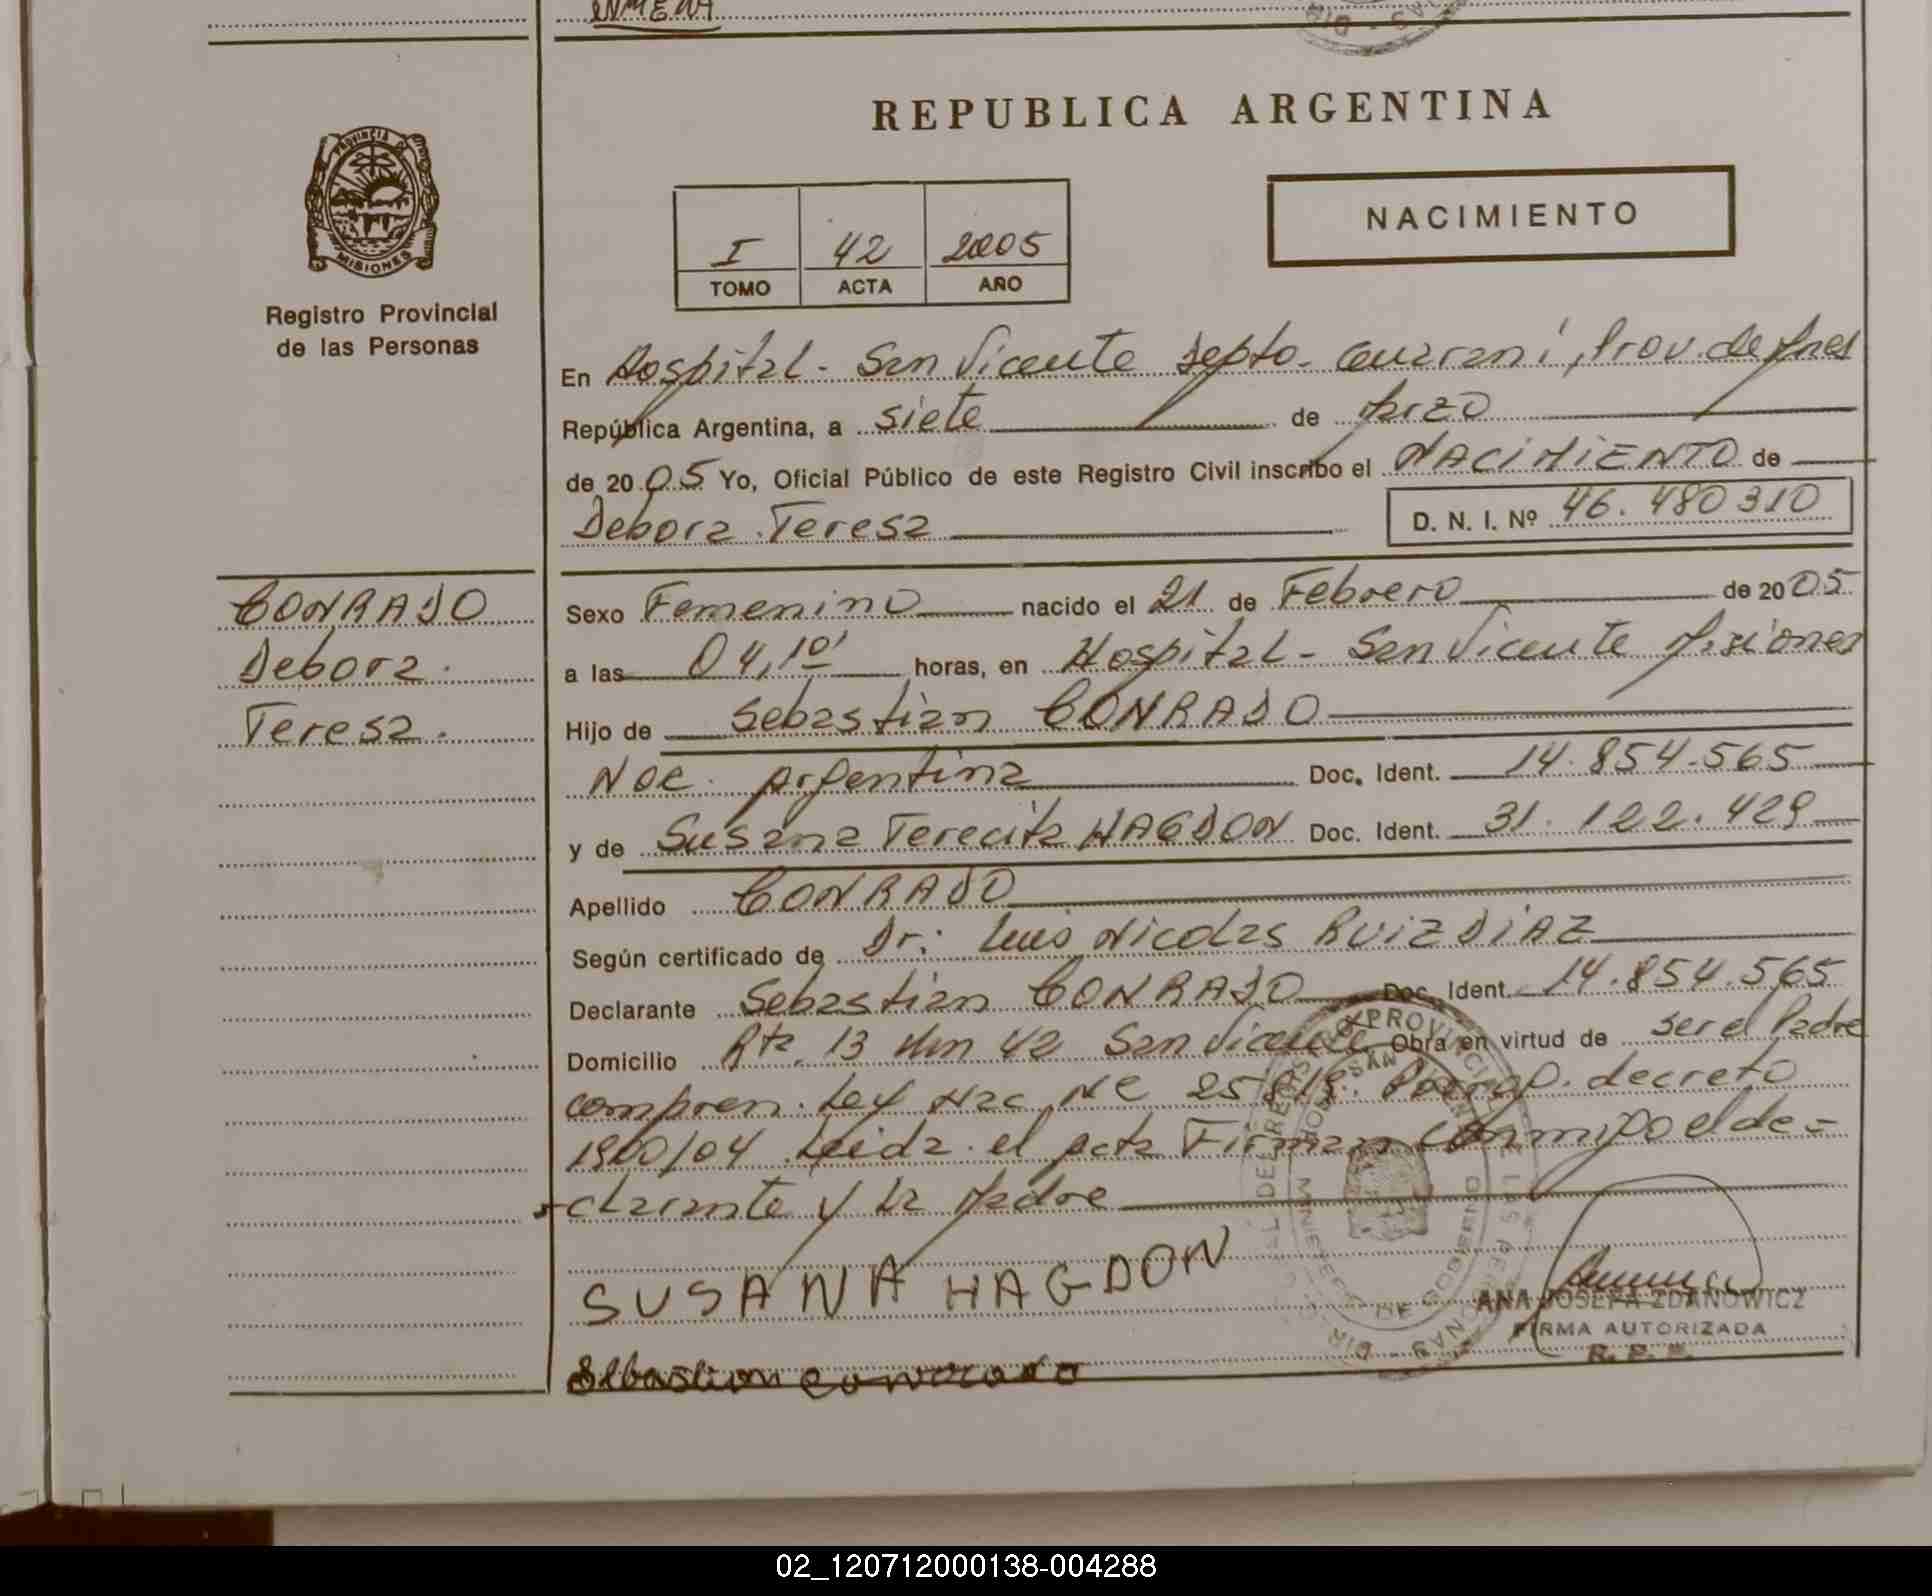 INMENA
REPUBLICA ARGENTINA
PROVINCIA DE
MISIONES
Registro Provincial
de las Personas
I 42 2005
TOMO ACTA AÑO
NACIMIENTO
En Hospital - San Vicente Depto. Guarani, Prov. de Mnes
República Argentina, a siete de Marzo
de 2005 Yo, Oficial Público de este Registro Civil inscribo el NACIMIENTO de
Debora Teresa
D. N. I. Nº 46.480310
CONRADO
Debora
Teresa.
Sexo Femenino nacido el 21 de Febrero de 2005
a las 04,10' horas, en Hospital - San Vicente Misiones
Hijo de Sebastian CONRADO
Nac. Argentina Doc. Ident. 14.854.565
y de Susana Terecita HAGDON Doc. Ident. 31.122.429
Apellido CONRADO
Según certificado de Dr: Luis Nicolas RUIZ DIAZ
Declarante Sebastian CONRADO Doc. Ident. 14.854.565
Domicilio Rta. 13 Km 42 San Vicente Obra en virtud de ser el Padre
compren. Ley Nac Nº 25.819. decreto
1900/04 Leida el acta Firman conmigo el de=
clarante y la Madre
SUSANA HAGDON
Sebastian conrado
ANA JOSEFA ZDANOWICZ
FIRMA AUTORIZADA
R. P. P.
02_120712000138-004288